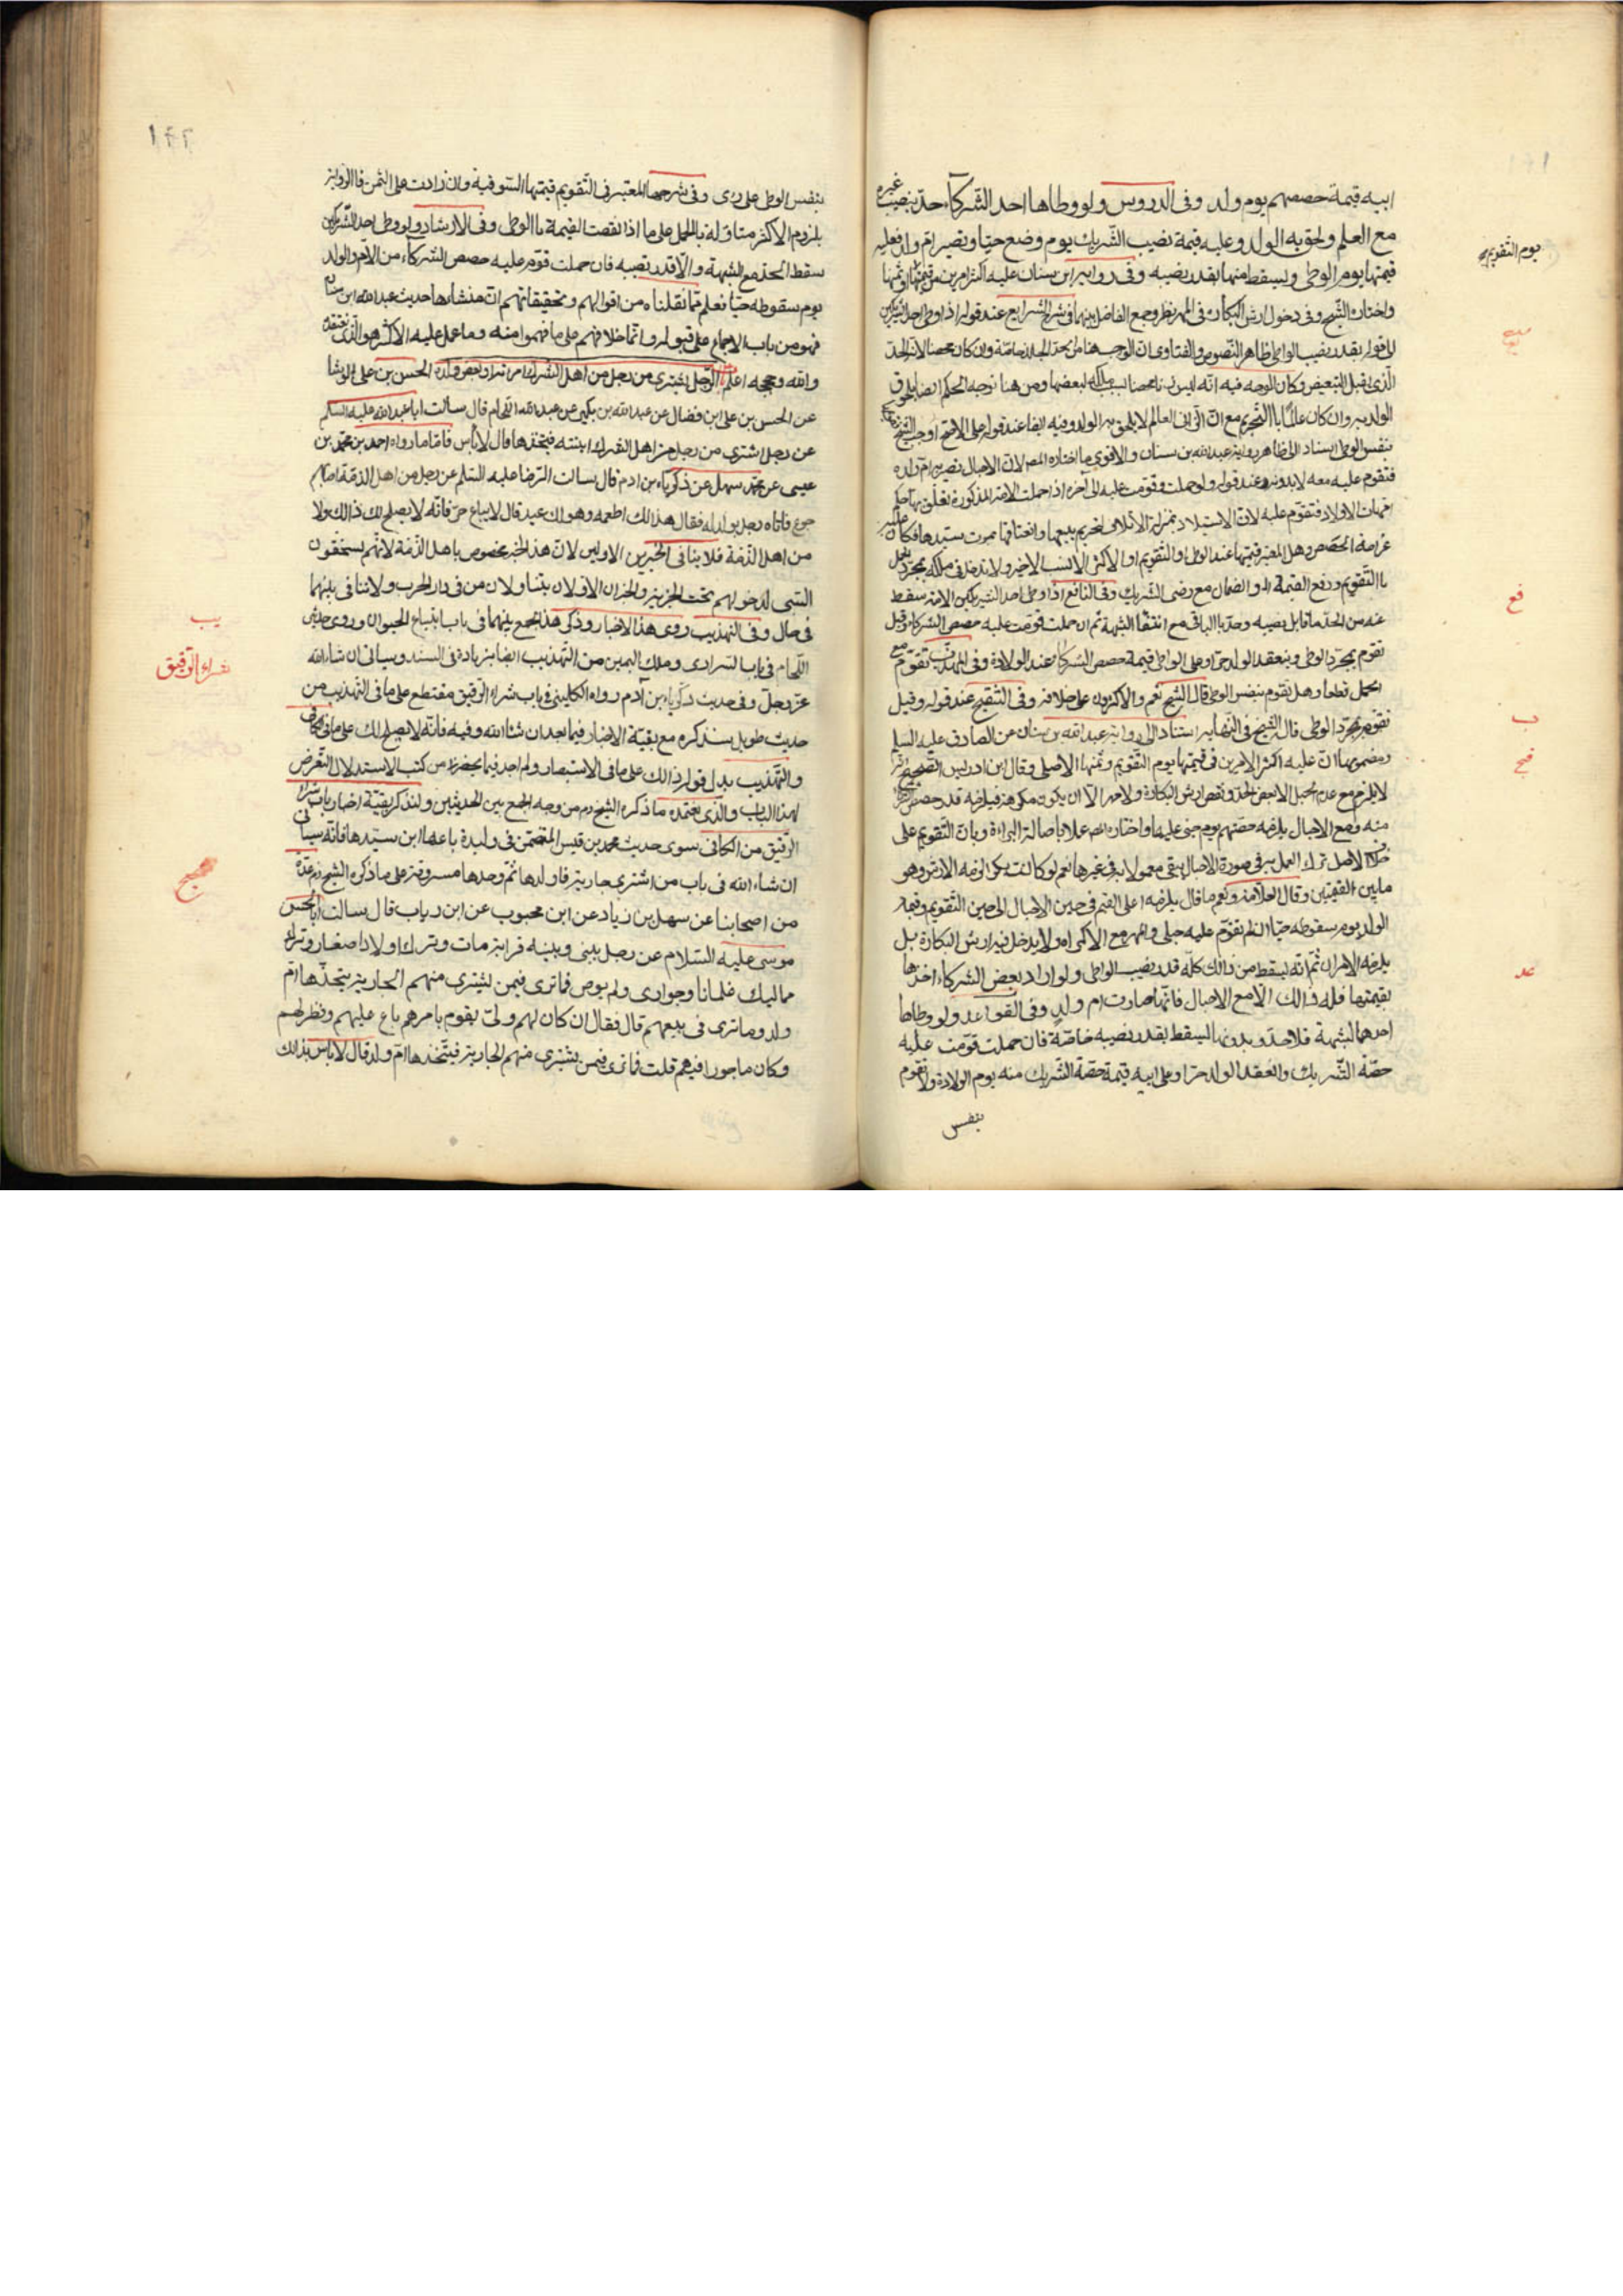 ابيه قيمة حصصهم يوم ولد وفى الدروس ولو وطاها احد الشركاء حدّ بنصيب غيره
مع العلم ولحق به الولد وعليه قيمة نصيب الشريك يوم وضع حيا وتصير ام ولد فعليه
قيمتها يوم الوطى ويسقط منها بقدر نصيبه وفى رواية ابن سنان عليه اكثر الامرين من قيمتها وثمنها
واختاره الشيخ وفى دخول ارش البكارة فى المهر نظر وجمع الفاضل بينهما وفى شرح الشرايع عند قوله اذا وطى احد الشريكين
الى قوله بقدر نصيب الواطى ظاهر النصوص والفتاوى ان الواجب هنا
الّذى يقبل التبعيض وكان الوجه فيه انه ليس زنا محضا بسبب ملكه لبعضها ومن هنا توجه الحكم ايضا بلحوق
الولد به وان كان عالما بالتحريم مع انّ الزانى العالم لا يلحق به الولد وفيه ايضا عند قوله على الاصح اوجب الشيخ
بنفس الوطى استنادا الى ظاهر رواية عبدالله بن سنان والاقوى ما اختاره المص لان الاحبال تصير به ام ولده
فتقوم عليه معه لا بدونه وعند قوله ولو حملت قومت عليه الى آخره اذا حملت الامة المذكورة تعلق بها حكم
امهات الاولاد فتقوم عليه لانّ الاستيلاد بمنزلة الاتلاف لتحريم بيعها
غرامة الحصص وهل المعتبر قيمتها عند الوطى او التقويم او الاكثر الانسب الاخير ولا تدخل فى ملكه بمجرّد الحمل
باالتقويم ودفع القيمة او الضمان مع رضى الشريك وفى النافع اذا وطى احد الشريكين الامة سقط
عنه من الحد ما قابل نصيبه وحدّ باالباقى مع انتفاء الشبهة ثم ان حملت قومت عليه حصص الشركاء وقيل
تقوم بمجرّد الوطى وينعقد الولد حرا وعلى الواطى قيمة حصص الشركاء عند الولادة وفى المهذب تقوّم مع
الحمل قطعا وهل تقوم بنفس الوطى قال الشيخ نعم والاكثرون على خلافه وفى التنقيح عند قوله وقيل
تقوّم بمجرد الوطى قاله الشيخ فى النهاية استنادا الى رواية عبدالله بن سنان عن الصادق عليه السلم
ومضمونها انّ عليه اكثر الامرين فى قيمتها يوم التقويم وثمنها الاصلى وقال ابن ادريس الصحيح انّه
لا يلزم مع عدم الحبل الا بعض الحد ونقص ارش البكارة
منه ومع الاحبال يلزمه حصتهم يوم جنى عليها واختاره المص عملا باصالة البراءة وبان التقويم على
خلاف الاصل ترك العمل به فى صورة الاحبال يبقى معمولا به فى غيرها نعم لو كانت بكرا لزمه الارش وهو
مابين القيمتين وقال العلامة ونعم ما قال يلزمه اعلى القيم فى حين الاحبال الى حين التقويم وقيمة
الولد يوم سقوطه حيا ان لم تقوّم عليه حبلى والمهر مع الاكراه ولا يدخل فيه ارش البكارة بل
يلزمه الامران ثمّ انّه يسقط من ذالك كلّه قدر نصيب الواطى ولو اراد بعض الشركاء اخذها
بقيمتها فله ذالك الّا مع الاحبال فانّها صارت ام ولد وفى القواعد ولو وطاها
احدهما لشبهة فلا حدّ وبدونها يسقط بقدر نصيبه خاصّة فان حملت قوّمت عليه
حصّة الشريك وانعقد الولد حرا وعلى ابيه قيمة حصّة الشريك منه يوم الولادة ولا تقوم
بنفس
يوم التّقويم
فع
ب
فتح
عد
بنفس الوطى على رى وفى شرحها المعتبر فى التّقويم قيمتها السوقية وان زادت على الثمن فاالرواية
بلزوم الاكثر متاوّلة باالحمل على ما اذا نقصت القيمة باالوطى وفى الارشاد ولو وطى احد الشريكين
سقط الحد مع الشبهة والّا قدر نصيبه فان حملت قوّم عليه حصص الشركاء من الامّ والولد
يوم سقوطه حيا فعلم ممّا نقلناه من اقوالهم وتحقيقاتهم انّ منشاءها حديث عبدالله ابن سنان
فهو من باب الاجماع على قبوله وانّما خلافهم على ما فهموا منه وما عمل عليه الاكثر هو الّذى نعتقده
والله وحججه اعلم الرّجل يشترى من رجل من اهل الشرك امراته او بعض ولده الحسن بن على الوشا
عن الحسن بن على ابن فضال عن عبدالله بن بكير عن عبدالله اللحام قال سالت ابا عبدالله عليه السلم
عن رجل اشترى من رجل من اهل الشرك ابنته فيتخذها قال لا باس فامّا ما رواه احمد بن محمّد بن
عيسى عن محمّد بن سهل عن ذكرياء بن ادم قال سالت الرّضا عليه السّلم عن رجل من اهل الذمّة اصابهم
جوع فاتاه رجل بولد له فقال هذا لك اطعمه وهو لك عبد قال لا يباع حرّ فانّه لا يصلح لك ذالك ولا
من اهل الذّمّة فلا ينافى الخبرين الاولين لانّ هذا الخبر مخصوص باهل الذّمّة لانّهم يستحقون
السّبى لدخولهم تحت الجزية والخبران الاوّلان يتناولان من فى دار الحرب ولا تنافى بينهما
فى حال وفى التهذيب روى هذا الاخبار وذكر هذا لجمع بينهما فى باب ابتياع الحيوان وروى حديث
اللّحام فى باب السّرارى وملك اليمين من التهذيب ايضا بزيادة فى السند وسياتى ان شاء الله
عزّ وجلّ وفى حديث ذكرياء بن آدم رواه الكلينى فى باب شراء الرّقيق مقتطع على ما فى التهذيب من
حديث طويل سنذكره مع بقيّة الاخبار فيما بعد ان شاء الله وفيه فانّه لا يصلح لك على ما فى الكافى
والتهذيب بدل قوله ذالك على ما فى الاستبصار ولم اجد فيما يحضرنى من كتب الاستدلال التّعرض
لهذا الباب والّذى نعتمده ما ذكره الشيخ ره من وجه الجمع بين الحديثين ولنذكر بقيّة اخبار باب شراء
الرّقيق من الكافى سوى حديث محمد بن قيس المتضمّن فى وليدة باعها ابن سيّدها فانّه سياتى
ان شاء الله فى باب من اشترى جارية فاولدها ثمّ وجدها مسروقة على ما ذكره الشيخ ره عدّة
من اصحابنا عن سهل بن زياد عن ابن محبوب عن ابن رياب قال سالت ابا الحسن
موسى عليه السّلام عن رجل بينى وبينه قرابة مات وترك اولادا صغارا وترك
مماليك غلمانا وجوارى ولم يوص فما ترى فيمن يشترى منهم الجارية يتخذها امّ
ولد وما ترى فى بيعهم قال فقال ان كان لهم ولىّ يقوم بامرهم باع عليهم ونظر لهم
وكان ماجورا فيهم قلت فما ترى فيمن يشترى منهم الجارية فيتّخذها امّ ولد قال لا باس بذالك
يب
شراء الرّقيق
صحيح